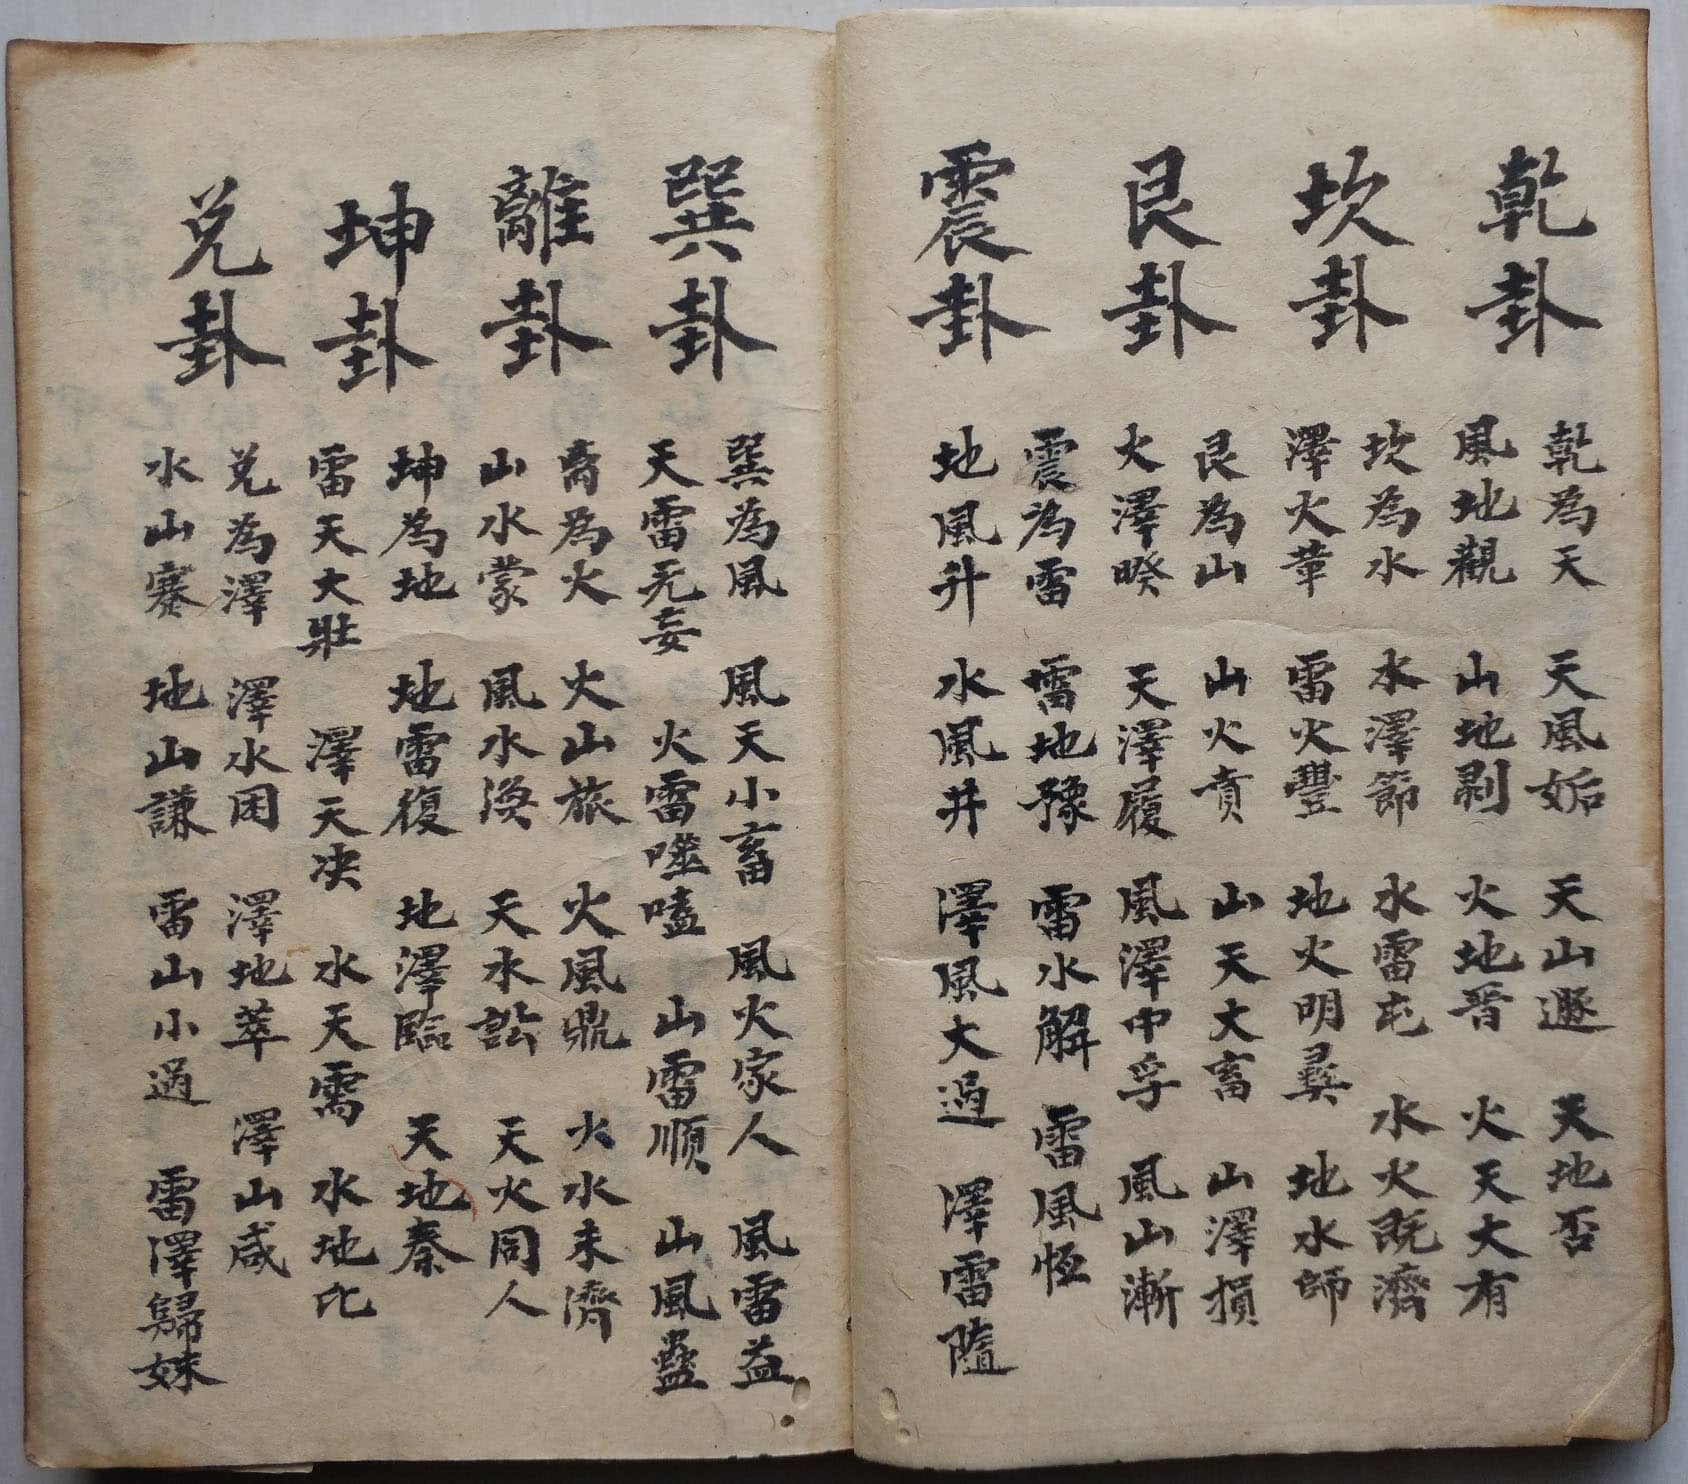 乾卦
乾為天 天風姤 天山遯 天地否
風地觀 山地剥 火地晋 火天大有
坎卦
坎為水 水澤節 水雷屯 水火既濟
澤火革 雷火豐 地火明彛 地水師
艮卦
艮為山 山火賁 山天大畜 山澤損
火澤暌 天澤履 風澤中孚 風山漸
震卦
震為雷 雷地豫 雷水解 雷風恆
地風升 水風井 澤風大過 澤雷隨
巽卦
巽為風 風天小畜 風火家人 風雷益
天雷无妄 火雷噬嗑 山雷順 山風蠱
離卦
离為火 火山旅 火風鼎 火水未濟
山水蒙 風水渙 天水訟 天火同人
坤卦
坤為地 地雷復 地澤臨 天地秦
雷天大壯 澤天决 水天需 水地比
兌卦
兌為澤 澤水困 澤地萃 澤山咸
水山蹇 地山謙 雷山小過 雷澤歸妹